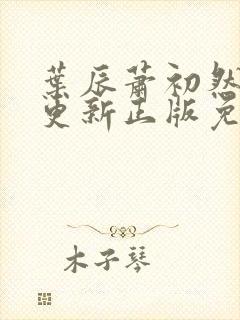 葉辰蕭初然
更新正版免
木子琴